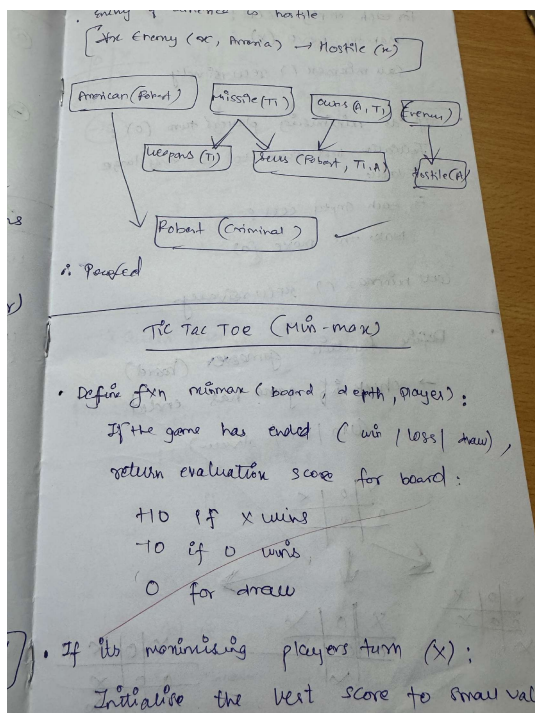 Enemy of America is hostile
∀x Enemy (x, America) → Hostile (x)
American (Robert)
Missile (T1)
Owns (A, T1)
Enemy
Weapons (T1)
Sells (Robert, T1, A)
Hostile (A)
Robert (Criminal)
∴ Proved
Tic Tac Toe (Min-max)
• Define fxn minmax (board, depth, player):
If the game has ended (win / loss / draw),
return evaluation score for board:
+10 if X wins
-10 if O wins
0 for draw
• If its maximising players turn (X):
Initialise the best score to small val